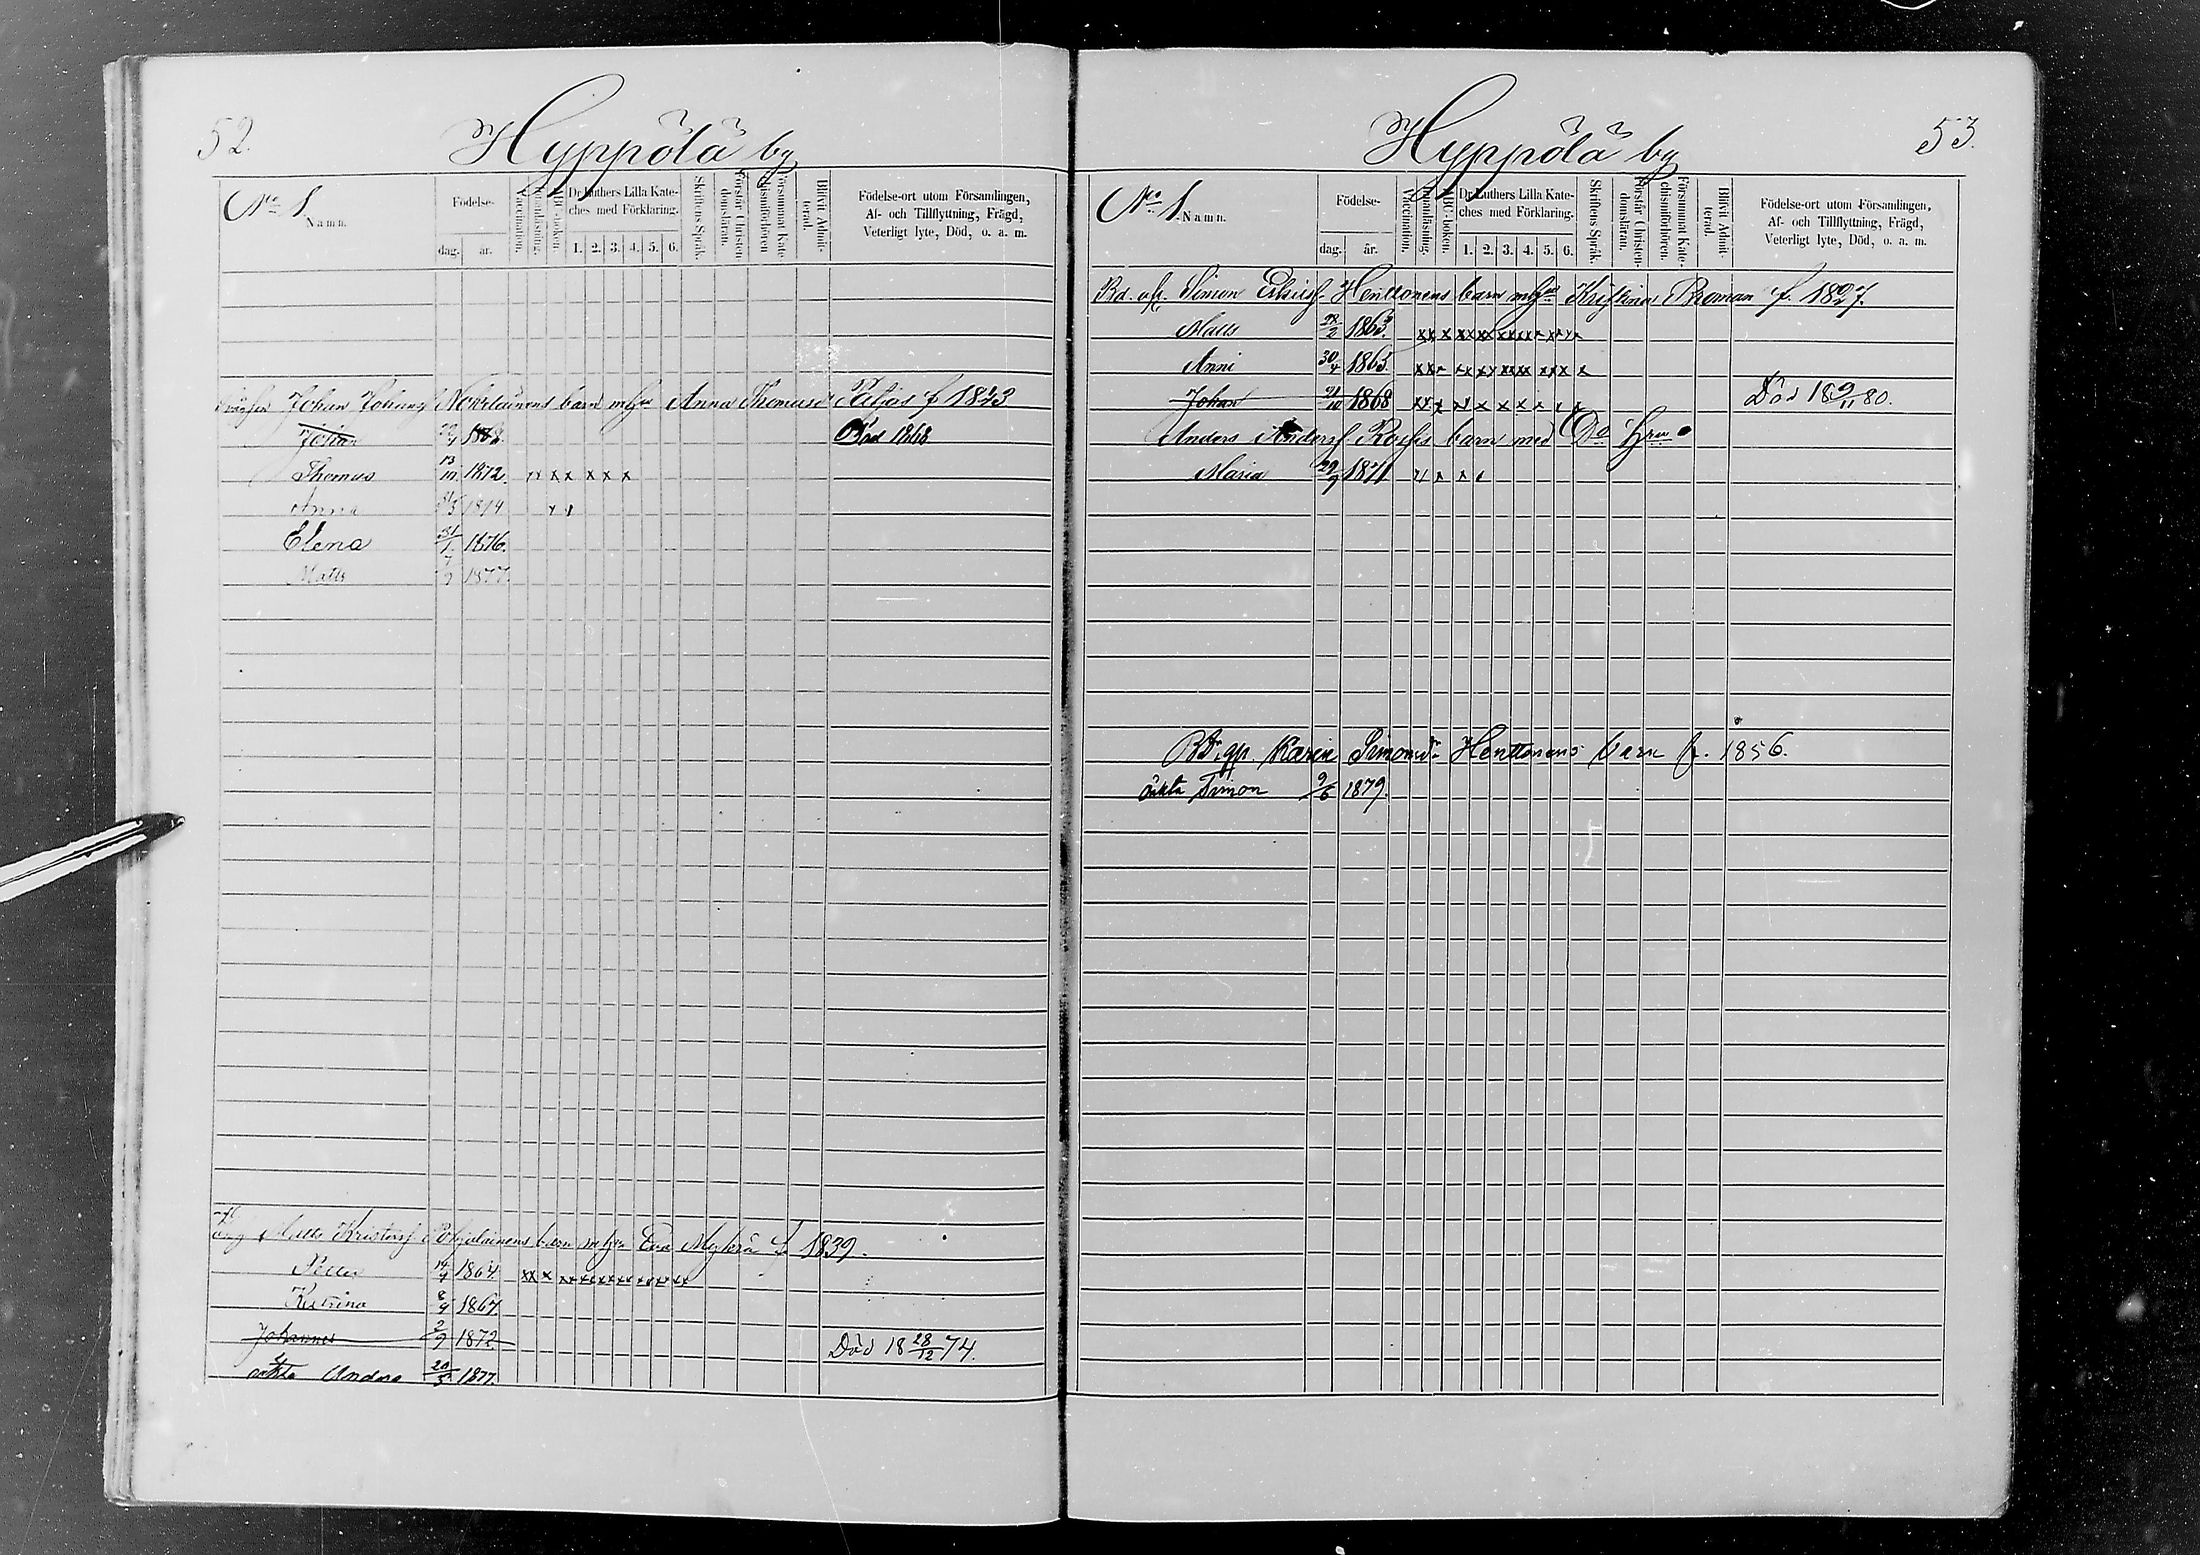 52.
Hyppölä by
No 1
Namn.
Födelse-
dag. år.
Vaccination.
Innanläsning.
ABC-boken.
Dr Luthers Lilla Kate-
ches med Förklaring.
1. 2. 3. 4. 5. 6.
Skriftens Språk.
Förstår Christen-
domsläran.
Försummat Kate-
chismiförhören.
Blifvit Admit-
terad.
Födelse-ort utom Församlingen,
Af- och Tillflyttning, Frägd,
Veterligt lyte, Död, o. a. m.
Johan Nokelainens barn m hu Anna Thomasdr f 1843
Johan 1868. Död 1868
Thomas 13/10 1872. x x x x x x
Anna 31/5 1874 x x
Elena 31/1. 1876.
Matts 7/9 1877.
Matts Kristersf Pohjolainens barn m hu Eva Mykrä f 1839.
Petter 1864. xx x xxxxxxxxxx
Katrina 8/4 1867.
Johannes 2/9 1872. Död 18 28/12 74.
äkta Anders 20/3 1877.
53.
Hyppölä by
No 1.
Namn.
Födelse-
dag. år.
Vaccination.
Innanläsning.
ABC-boken.
Dr Luthers Lilla Kate-
ches med Förklaring.
1. 2. 3. 4. 5. 6.
Skriftens Språk.
Förstår Christen-
domsläran.
Försummat Kate-
chismiförhören.
Blifvit Admit-
terad
Födelse-ort utom Församlingen,
Af- och Tillflyttning, Frägd,
Veterligt lyte, Död, o. a. m.
Simon Henttonens barn m hu Kristina f. 1827.
Matts 28/2 1863. xxx xxxx xxxxx xxx
Anni 30/4 1865. xxx xxxx xxxx xxx x
Johan 21/10 1868 xx x xx x x x x x x Död 18 9/11 80.
Anders Andersf barn med Do Hru
Maria 29/9 1871 x x x x
Karin Simonsdr Henttonens barn f. 1856.
äkta Simon 9/6 1879.